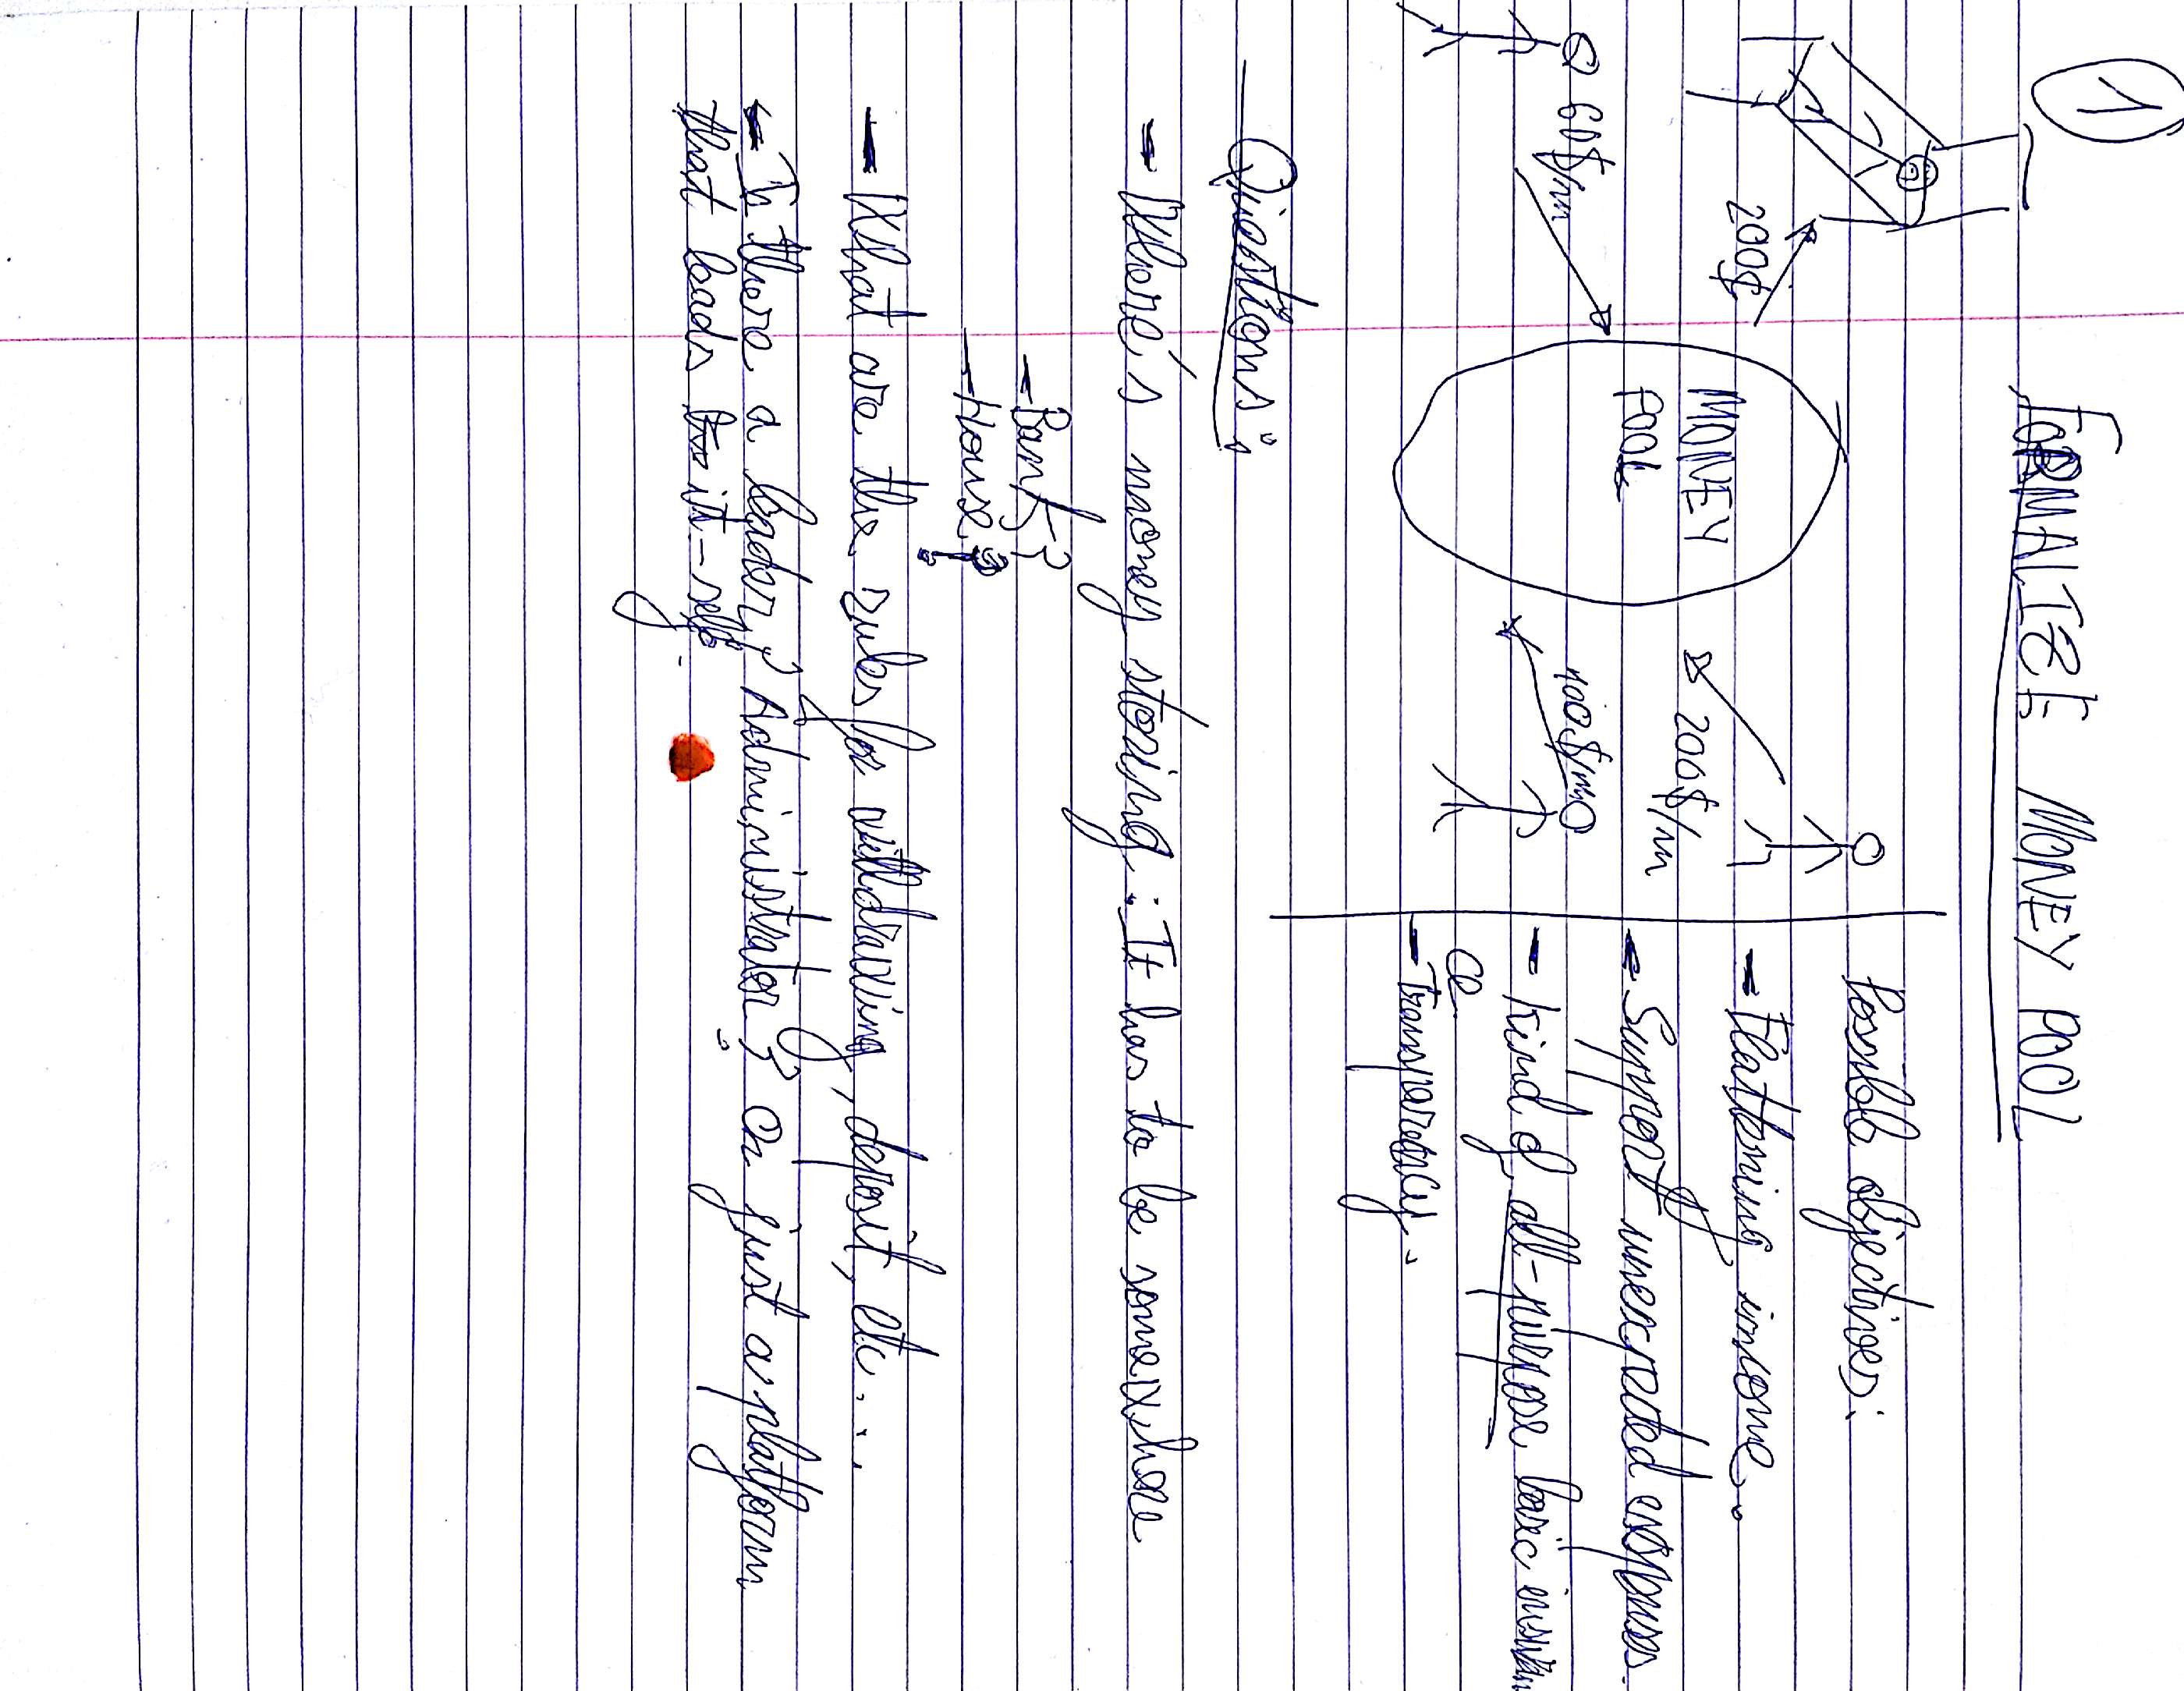 1
FORMALIZE MONEY POOL
200$
MONEY
POOL
60$/m
200$/m
100$/m
Possible objectives:
- Flattening income..
- Support unexpected expenses.
- Kind of all-purpose basic insuran
ce
- Transparency.
Questions:
- Where's money storing: It has to be somewhere
- Bank?
- House?
- What are the rules for withdrawing, deposit, etc...
- Is there a leader? Administrator? Or just a platform
that leads it-self.